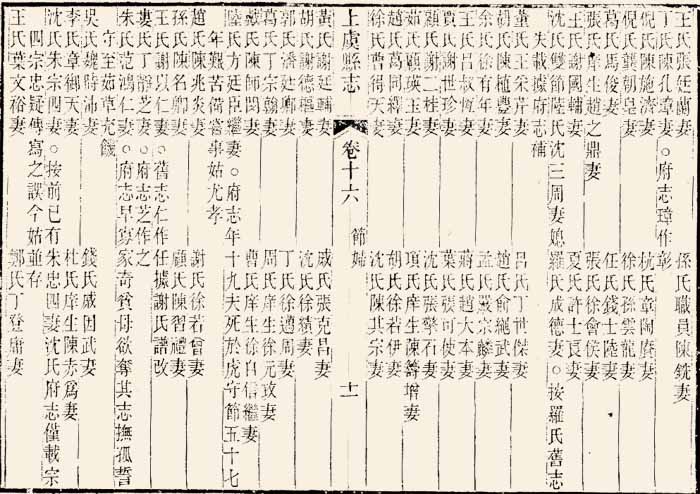 王氏王廷蘭妻
丁氏陳孔章妻。府志璋作彰
孫氏職員陳銑妻
倪氏陳施濟妻
杭氏章陶賡妻
倪氏龔朝皂妻
徐氏孫雲龍妻
葛氏馬俊妻
任氏錢士陸妻
張氏庠生趙之鼎妻
張氏徐會侯妻
王氏謝國輔妻
夏氏許士良妻
沈氏雙節陸氏沈三周妻媳羅氏成德妻。按羅氏舊志
失載據府志補
董氏王采芹妻
呂氏丁世傑妻
胡氏陳植豐妻
趙氏俞繩武妻
余氏徐有年妻
孟氏嚴宗麟妻
王氏呂叔恆妻
蔣氏趙大本妻
賈氏謝世珍妻
葉氏張可使妻
顧氏謝二桂妻
沈氏張擎石妻
茹氏顧瑛玉妻
項氏庠生陳籌增妻
趙氏葛同繹妻
胡氏徐若伊妻
徐氏曹得天妻
沈氏陳其宗妻
上虞縣志
卷十六
節婦
十一
黃氏謝廷輔妻
戚氏張克昌妻
胡氏謝德樞妻
沈氏徐績妻
郭氏潘廷卿妻
丁氏徐邁周妻
葛氏丁宗翰妻
周氏庠生徐元玫妻
戴氏陳師閎妻
曹氏庠生徐自信繼妻
陸氏方廷臣繼妻。府志年十九夫死於虎守節五十七
年艱苦備嘗事姑尤孝
趙氏陳兆炎妻
謝氏徐若曾妻
孫氏陳名卿妻
顧氏陳習禮妻
王氏謝以仁妻。舊志仁作任據謝氏譜改
婁氏丁靜芝妻。府志芝作之
朱氏范鴻仁妻。府志早寡家奇貧母欲奪其志撫孤誓
守至茹草充饑
吳氏魏時沛妻
錢氏戚因武妻
李氏章御天妻
杜氏庠生陳赤為妻
沈氏朱宗四妻。按前已有朱忠四妻沈氏府志僅載宗
四宗忠疑傳寫之誤今姑並存
王氏葉文裕妻
鄭氏丁登庸妻